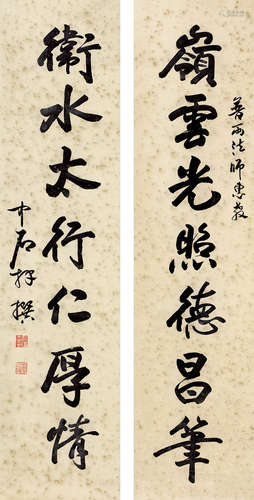 嶺雲光照德昌筆
普雨法師惠教
衛水太行仁厚情
中石拜撰